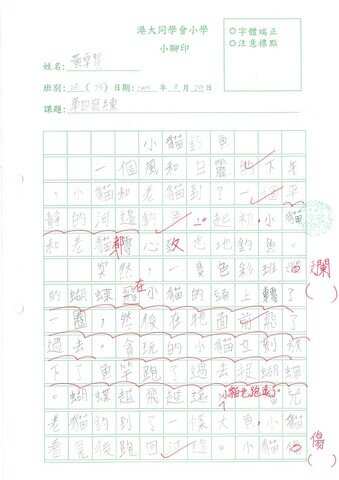 港大同學會小學
小腳印
○字體端正
○注意標點
姓名：
班別：2A（29）日期：2015年 月2 日
課題：單四寫練
小貓釣魚
一個風和日麗的下午
，小貓和老貓到了一個平
靜的河邊釣魚。起初，小貓
和老貓都專心致志地釣魚。
突然，一隻色彩班斕
的蝴蝶飛在小貓的頭上轉了
一圈，然後在花面前飛了
過去。貪玩的小貓立刻放
下了魚竿跑了過去捉蝴蝶
。蝴蝶越飛越遠，小貓也跑遠。
老貓釣到了一條大魚，小貓
看見後跑回河邊。小貓傷
斕
（ ）
傷
（ ）